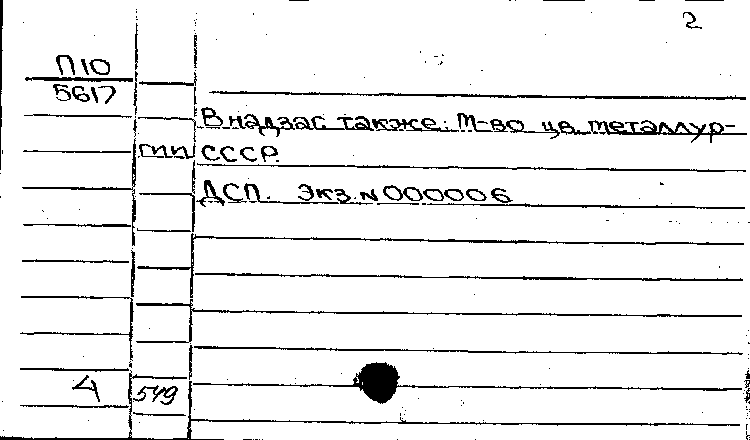 2
П10
5617
В надзаг. также: М-во цв. металлур-
гии СССР.
ДСП. Экз. N 000006
4 549